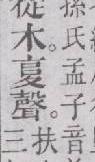 孫氏孟子音
從木。夏聲。
扶
三